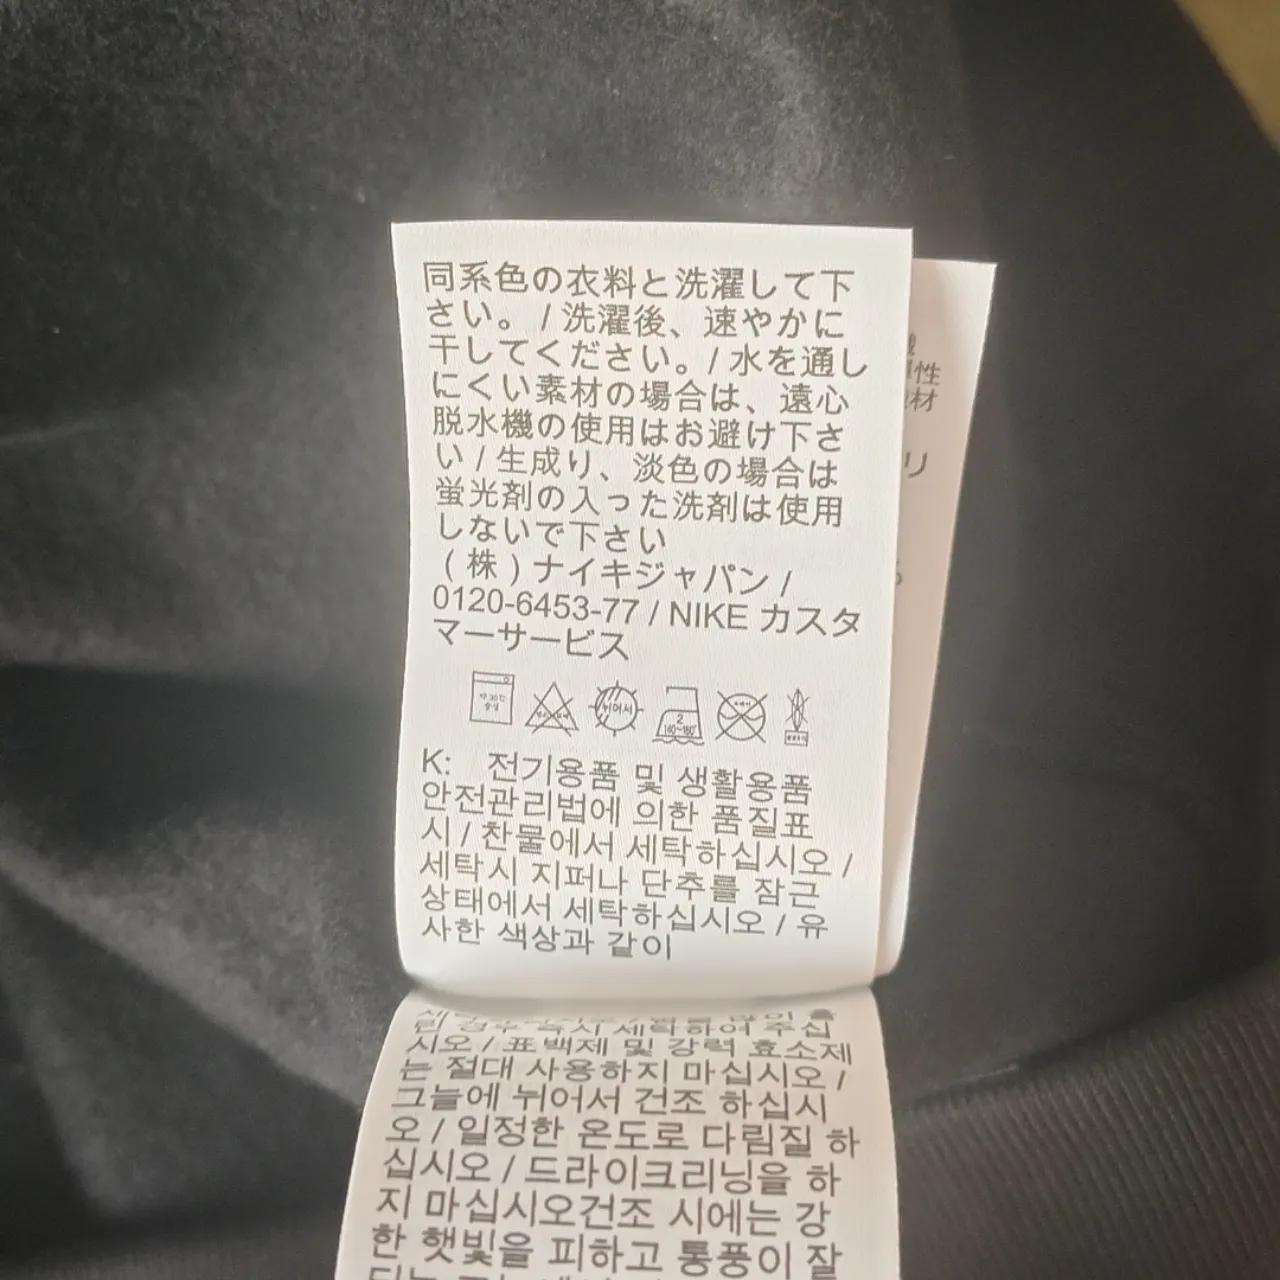 同系色の衣料と洗濯して下
さい。 / 洗濯後、速やかに
干してください。/ 水を通し
にくい素材の場合は、遠心
脱水機の使用はお避け下さ
い / 生成り、淡色の場合は
蛍光剤の入った洗剤は使用
しないで下さい
( 株 ) ナイキジャパン /
0120-6453-77 / NIKE カスタ
マーサービス
뉘어서
2
160~180°
K: 전기용품 및 생활용품
안전관리법에 의한 품질표
시 / 찬물에서 세탁하십시오 /
세탁시 지퍼나 단추를 잠근
상태에서 세탁하십시오 / 유
사한 색상과 같이
린 경우 즉시 세탁하여 주십
시오 / 표백제 및 강력 효소제
는 절대 사용하지 마십시오 /
그늘에 뉘어서 건조 하십시
오 / 일정한 온도로 다림질 하
십시오 / 드라이크리닝을 하
지 마십시오건조 시에는 강
한 햇빛을 피하고 통풍이 잘
性
材
リ